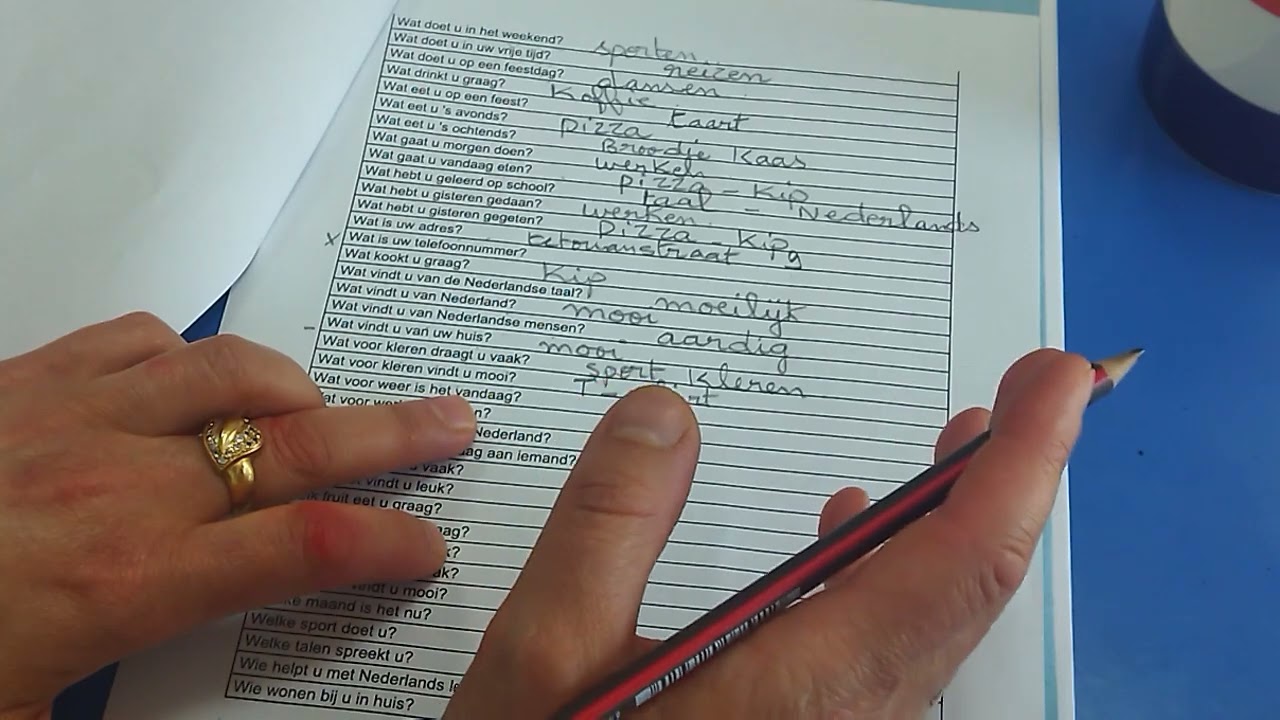 Wat doet u in het weekend? sporten
Wat doet u in uw vrije tijd? reizen
Wat doet u op een feestdag? dansen
Wat drinkt u graag? Koffie
Wat eet u op een feest? taart
Wat eet u 's avonds? Pizza
Wat eet u 's ochtends? Broodje Kaas
Wat gaat u morgen doen? werken
Wat gaat u vandaag eten? Pizza - Kip
Wat hebt u geleerd op school? taal - Nederlands
Wat hebt u gisteren gedaan? werken
Wat hebt u gisteren gegeten? Pizza - Kip
Wat is uw adres? 9
x Wat is uw telefoonnummer?
Wat kookt u graag? Kip
Wat vindt u van de Nederlandse taal? moeilijk
Wat vindt u van Nederland? mooi
Wat vindt u van Nederlandse mensen? aardig
- Wat vindt u van uw huis? mooi
Wat voor kleren draagt u vaak? sport Kleren
Wat voor kleren vindt u mooi?
Wat voor weer is het vandaag?
at voor
Nederland?
aan iemand?
vaak?
vindt u leuk?
fruit eet u graag?
vindt u mooi?
maand is het nu?
Welke sport doet u?
Welke talen spreekt u?
Wie helpt u met Nederlands
Wie wonen bij u in huis?